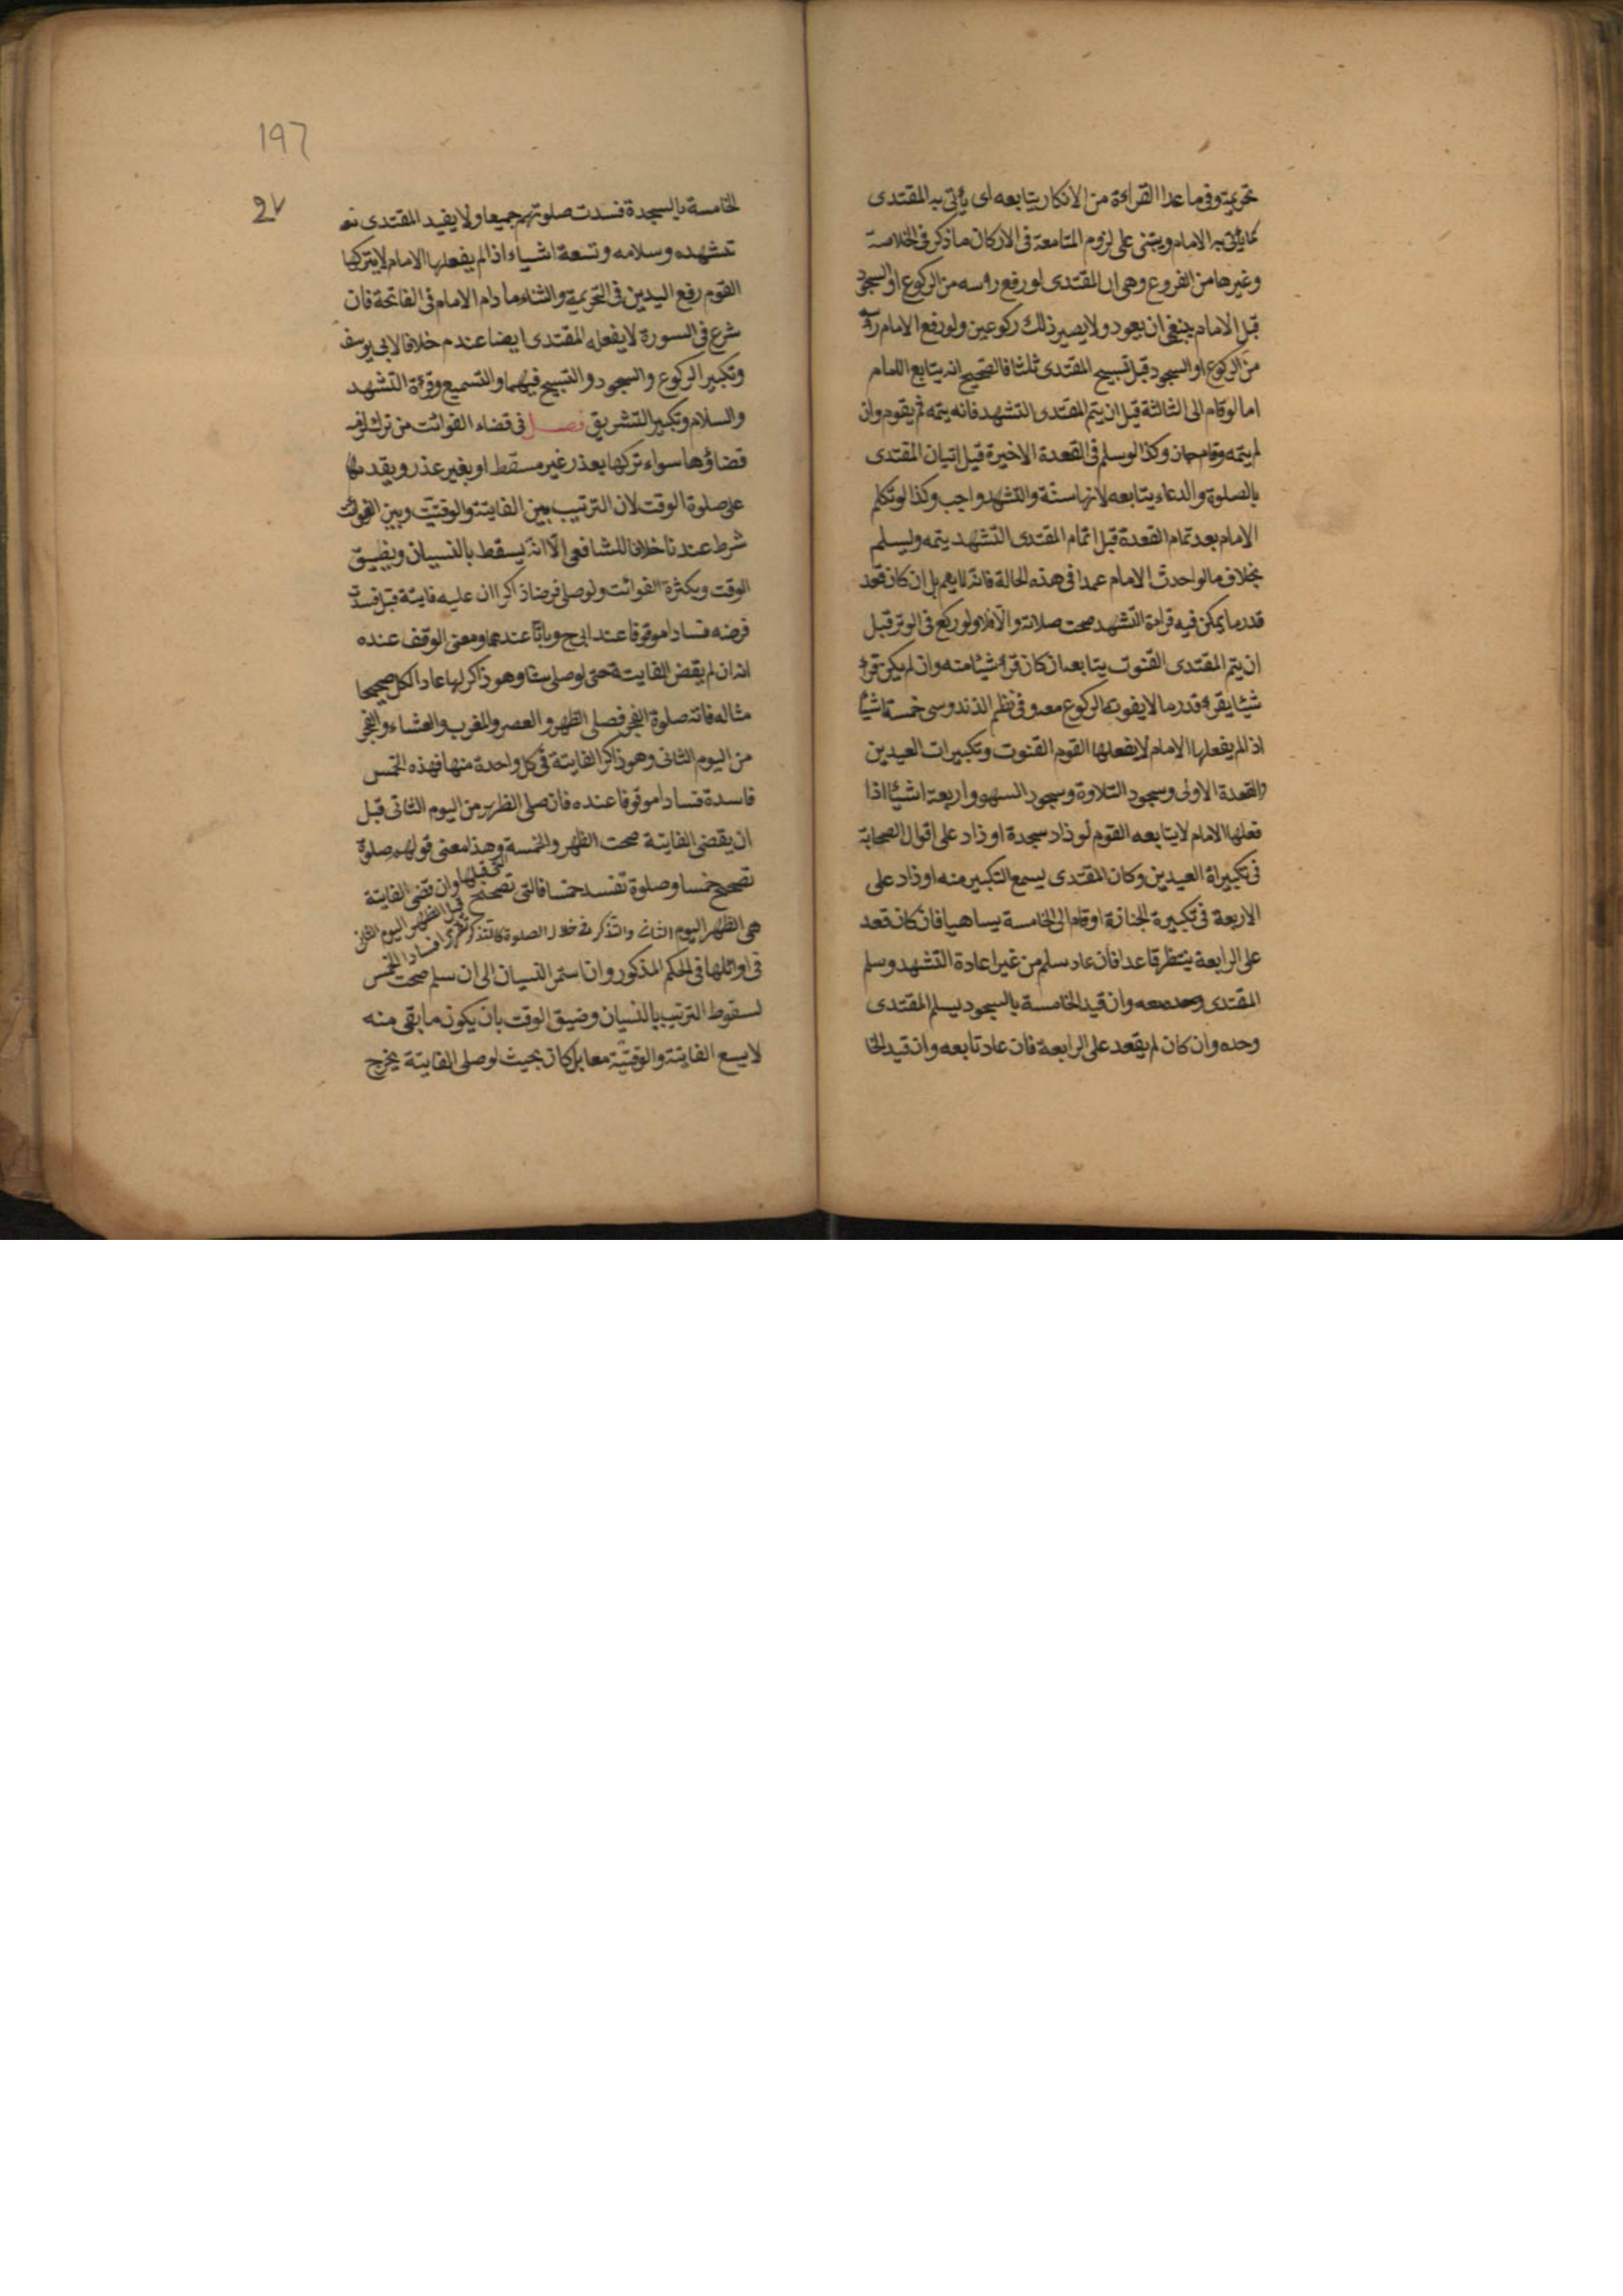 تحريمته وفى ما عدا القراءة من الاذكار يتابعه اى يأتى به المقتدى
كما يأتى به الامام ويبتنى على لزوم المتابعة فى الاركان ما ذكر فى الخلاصة
وغيرها من الفروع وهى ان المقتدى لو رفع رؤسه من الركوع او السجود
قبل الامام ينبغى ان يعود ولا يصير ذلك ركوعين ولو رفع الامام رأسه
من الركوع او السجود قبل تسبيح المقتدى ثلثا فالصحيح انه يتابع الامام
اما لو قام الى الثالثة قبل ان يتم المقتدى التشهد فانه يتمه ثم يقوم وان
لم يتمه وقام جاز وكذا لو سلم فى القعدة الاخيرة قبل اتيان المقتدى
بالصلوة والدعاء يتابعه لانها سنة والتشهد واجب وكذا لو تكلم
الامام بعد تمام القعدة قبل اتمام المقتدى التشهد يتمه وليسلم
بخلاف ما لو احدث الامام عمدا فى هذه الحالة فانه لا يتم بل ان كان قعد
قدر ما يمكن فيه قراءة التشهد صحت صلاته والا فلا ولو ركع فى الوتر قبل
ان يتم المقتدى القنوت يتابعه ان كان قرأ شيئا منه وان لم يكن قرأ
شيئا يقرء قدر ما لا يفوته الركوع معه وفى نظم الذندوسى خمسة اشيأ
اذا لم يفعلها الامام لا يفعلها القوم القنوت وتكبيرات العيدين
والقعدة الاولى وسجود التلاوة وسجود السهو واربعة اشيئا اذا
فعلها الامام لا يتابعه القوم لو زاد سجدة او زاد على اقوال الصحابة
فى تكبيراة العيدين وكان المقتدى يسمع التكبير منه او زاد على
الاربعة فى تكبيرة الجنازة او قام الى الخامسة ساهيا فان كان قعد
على الرابعة ينتظر قاعدا فان عاد سلم من غير اعادة التشهد وسلم
المقتدى معه وان قيد الخامسة بالسجود يسلم المقتدى
وحده وان كان لم يقعد على الرابعة فان عاد تابعه وان قيد الخا
197
27
الخامسة بالسجدة فسدت صلوتهم جميعا ولا يفيد المقتدى
تشهده وسلامه وتسعة اشياء اذا لم يفعلها الامام لا يتركها
القوم رفع اليدين فى التحريمة والثناء ما دام الامام فى الفاتحة فان
شرع فى السورة لا يفعله المقتدى ايضا عند م خلافا لابى يوسف
وتكبير الركوع والسجود والتسبيح فيهما والتسميع وقرءة التشهد
والسلام وتكبير التشريق فصل فى قضاء الفوائت من ترك
قضاؤها سواء تركها بعذر غير مسقط او بغير عذر ويقدمها
على صلوة الوقت لان الترتيب بين الفايتة والوقتيّة وبين الفوائت
شرط عندنا خلافا للشافعى الّا انه يسقط بالنسيان وبضيق
الوقت وبكثرة الفوائت ولو صلى فرضا ذاكرا ان عليه فايتة قبل فسدت
فرضه فسادا موقوفا عند ابى ح وباتّا عندهما ومعنى الوقف عنده
انه ان لم يقض الفايتة حتى لو صلى ستا وهو ذاكر لها عاد الكل صحيحا
مثاله فاته صلوة الفجر فصلى الظهر والعصر والمغرب والعشاء والفجر
من اليوم الثانى وهو ذاكر الفايتة فى كل واحدة منها فهذه الخمس
فاسدة فسادا موقوفا عنده فان صلى الظهر من اليوم الثانى قبل
ان يقضى الفايتة صحت الظهر والخمسة وهذا معنى قولهم صلوة
تصحح خمسا وصلوة تفسد خمسا فالتى تصحح الخمس قبلها وان قضى الفايتة
قبل الظهر اليوم الثانى
هى الظهر اليوم الثانى والتذكر فى خلال الصلوة كالتذكر تقرر افساد الخمس
فى اوائلها فى الحكم المذكور وان استمر النسيان الى ان سلم صحت
لسقوط الترتيب بالنسيان وضيق الوقت بان يكون ما بقى منه
لا يسع الفايتة والوقتيّة معا بل كان بحيث لو صلى الفايتة يخرج